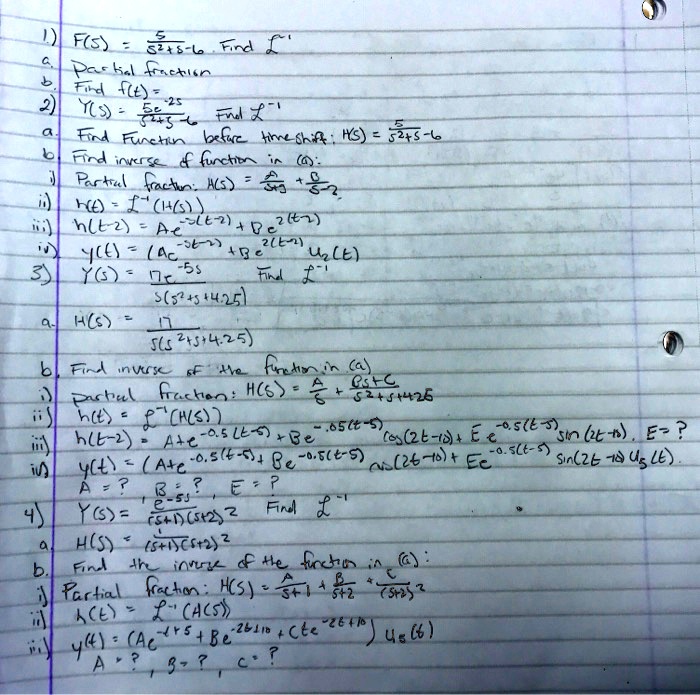 1) F(S) = 5/(S²+S-6). Find ℒ⁻¹
a. Partial fraction
b. Find f(t) =
2) Y(S) = 5e^-2S/(S²+S-6) Find ℒ⁻¹
a. Find Function before time shift; H(S) = 5/(S²+S-6)
b. Find inverse of function in (a):
i) Partial fraction: H(S) = A/(S+3) + B/(S-2)
ii) h(t) = ℒ⁻¹(H(S))
iii) h(t-2) = Ae^-3(t-2) + Be^2(t-2)
iv) y(t) = (Ae^-3(t-2) + Be^2(t-2) U₂(t)
3) Y(S) = 17e^-5s/(S(S²+S+4.25)) Find ℒ⁻¹
a. H(S) = 17/(S(S²+S+4.25)
b. Find inverse of the function in (a)
i) partial fraction: H(S) = A/S + (BS+C)/(S²+S+4.25)
ii) h(t) = ℒ⁻¹(H(S))
iii) h(t-2) = A+e^-0.5(t-5) + Be^-.05(t-5) cos(2t-10) + Ee^-0.5(t-5) sin(2t-10). E=?
iv) y(t) = (A+e^-0.5(t-5) + Be^-0.5(t-5) cos(2t-10) + Ee^-0.5(t-5) sin(2t-10 U₅(t).
A = ?, B = ?, E = ?
4) Y(S) = e^-5s/((S+1)(S+2)²) Find ℒ⁻¹
a. H(S) = 1/((S+1)(S+2)²)
b. Find the inverse of the function in (a):
i) Partial fraction: H(S) = A/(S+1) + B/(S+2) + C/(S+2)²
ii) h(t) = ℒ⁻¹(H(S))
iii) y(t) = (Ae^-t+5 + Be^-2t+10 + Cte^-2t+10) U₅(t)
A = ?, B = ?, C = ?